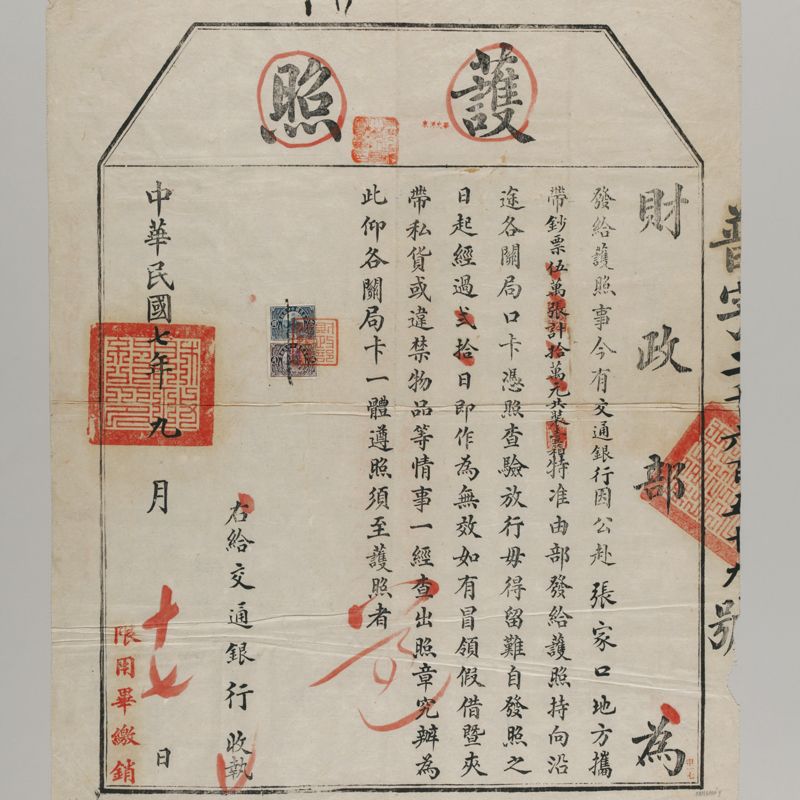 護照
財政部為
發給護照事今有交通銀行因公赴張家口地方攜
帶鈔票伍萬張計拾萬元共裝箱特准由部發給護照持向沿
途各關局口卡憑照查驗放行毋得留難自發照之
日起經過貳拾日即作為無效如有冒領假借暨夾
帶私貨或違禁物品等情事一經查出照章究辦為
此仰各關局卡一體遵照須至護照者
右給交通銀行收執
中華民國七年九月十七日
限用畢繳銷